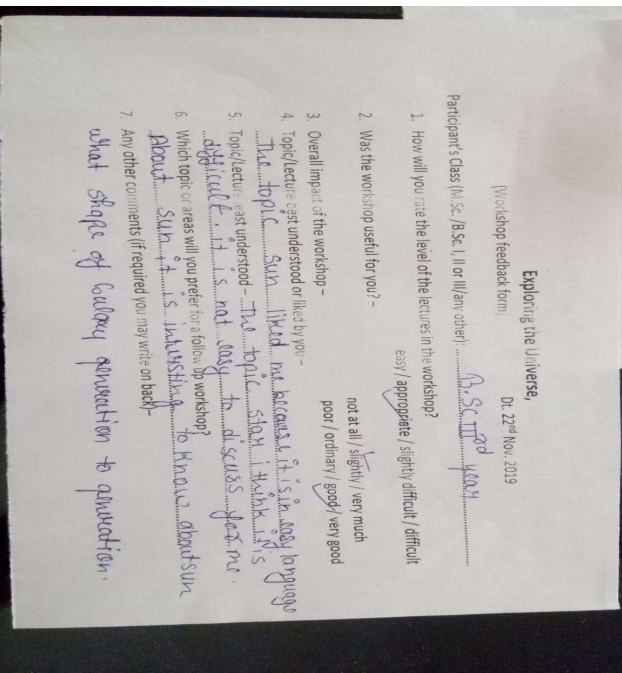 Exploring the Universe,
(Workshop feedback form) Dt. 22nd Nov. 2019
Participant's Class (M.Sc./B.Sc. I, II or III/any other): B.Sc IInd year
1. How will you rate the level of the lectures in the workshop?
easy / appropriate / slightly difficult / difficult
2. Was the workshop useful for you? –
not at all / slightly / very much
3. Overall impact of the workshop –
poor / ordinary / good / very good
4. Topic/Lecture best understood or liked by you –
The topic sun liked me because it is in easy language
5. Topic/Lecture least understood – The topic star i think it is
difficult. it is not easy to discuss for me.
6. Which topic or areas will you prefer for a follow up workshop?
About sun, it is intrusting to know about sun
7. Any other comments (if required you may write on back)–
what shape of Galaxy generation to generation.